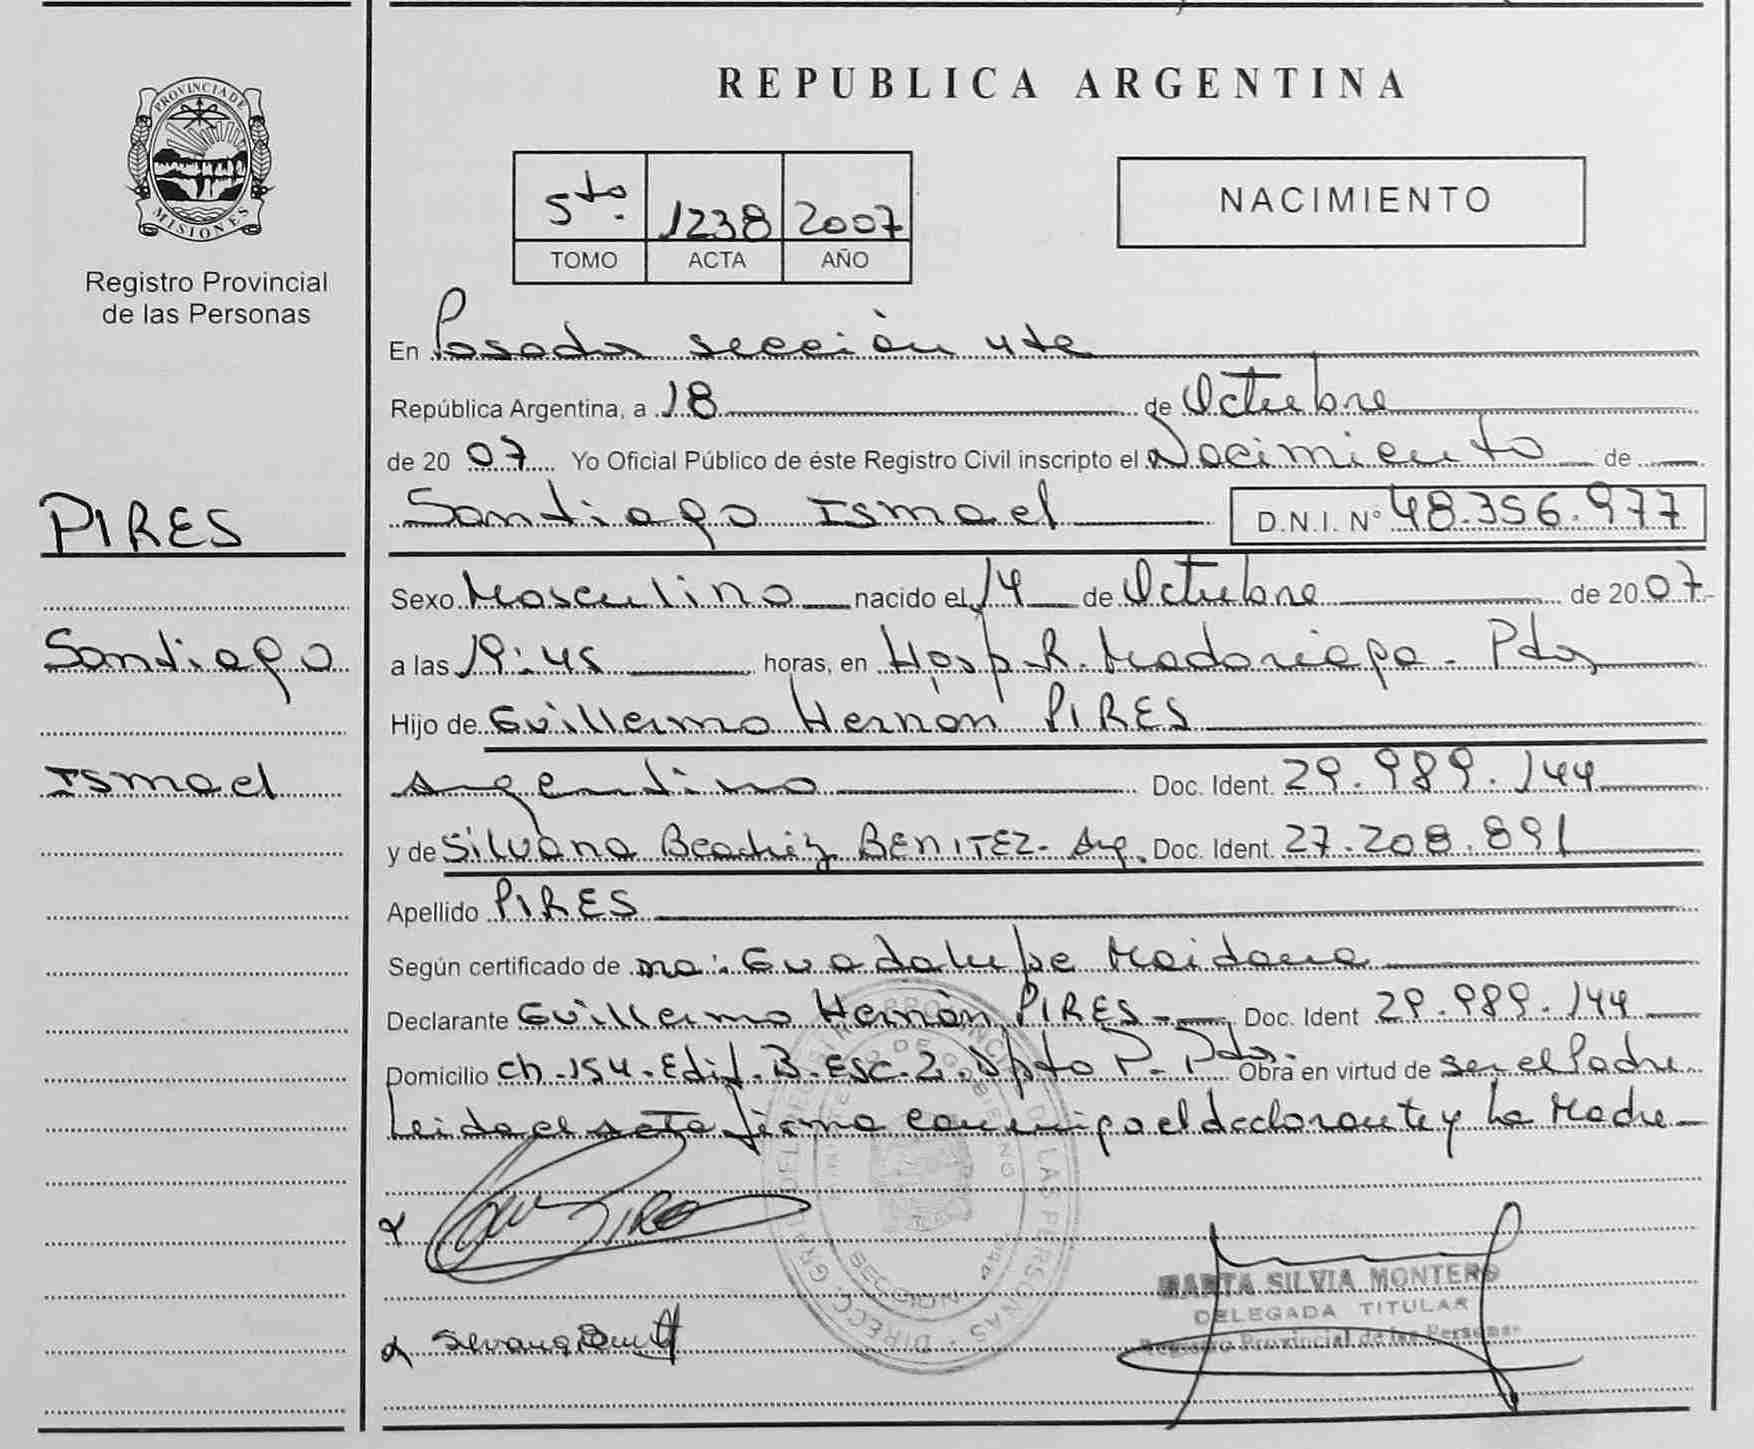 REPUBLICA ARGENTINA
PROVINCIA DE MISIONES
Registro Provincial
de las Personas
5to. 1238 2007
TOMO ACTA AÑO
NACIMIENTO
En Posadas sección 4ta
República Argentina, a 18 de Octubre
de 2007 Yo Oficial Público de éste Registro Civil inscripto el Nacimiento de
PIRES
Santiago Ismael D.N.I. Nº 48.356.977
Sexo Masculino nacido el 14 de Octubre de 2007
Santiago
a las 19:45 horas, en Hosp. R. Madariaga - Pdas
Hijo de Guillermo Hernan PIRES
Ismael
Argentino Doc. Ident. 29.989.144
y de Silvana Beatriz BENITEZ - Arg. Doc. Ident. 27.208.891
Apellido PIRES
Según certificado de ma: Guadalupe Maidana
Declarante Guillermo Hernán PIRES - Doc. Ident 29.989.144
Domicilio Ch. 154. Edif. B. Esc. 2. Dpto P. Pdas. Obra en virtud de ser el Padre
Leida el acta firma conmigo el declarante y la Madre
MARTA SILVIA MONTERO
DELEGADA TITULAR
Registro Provincial de las Personas